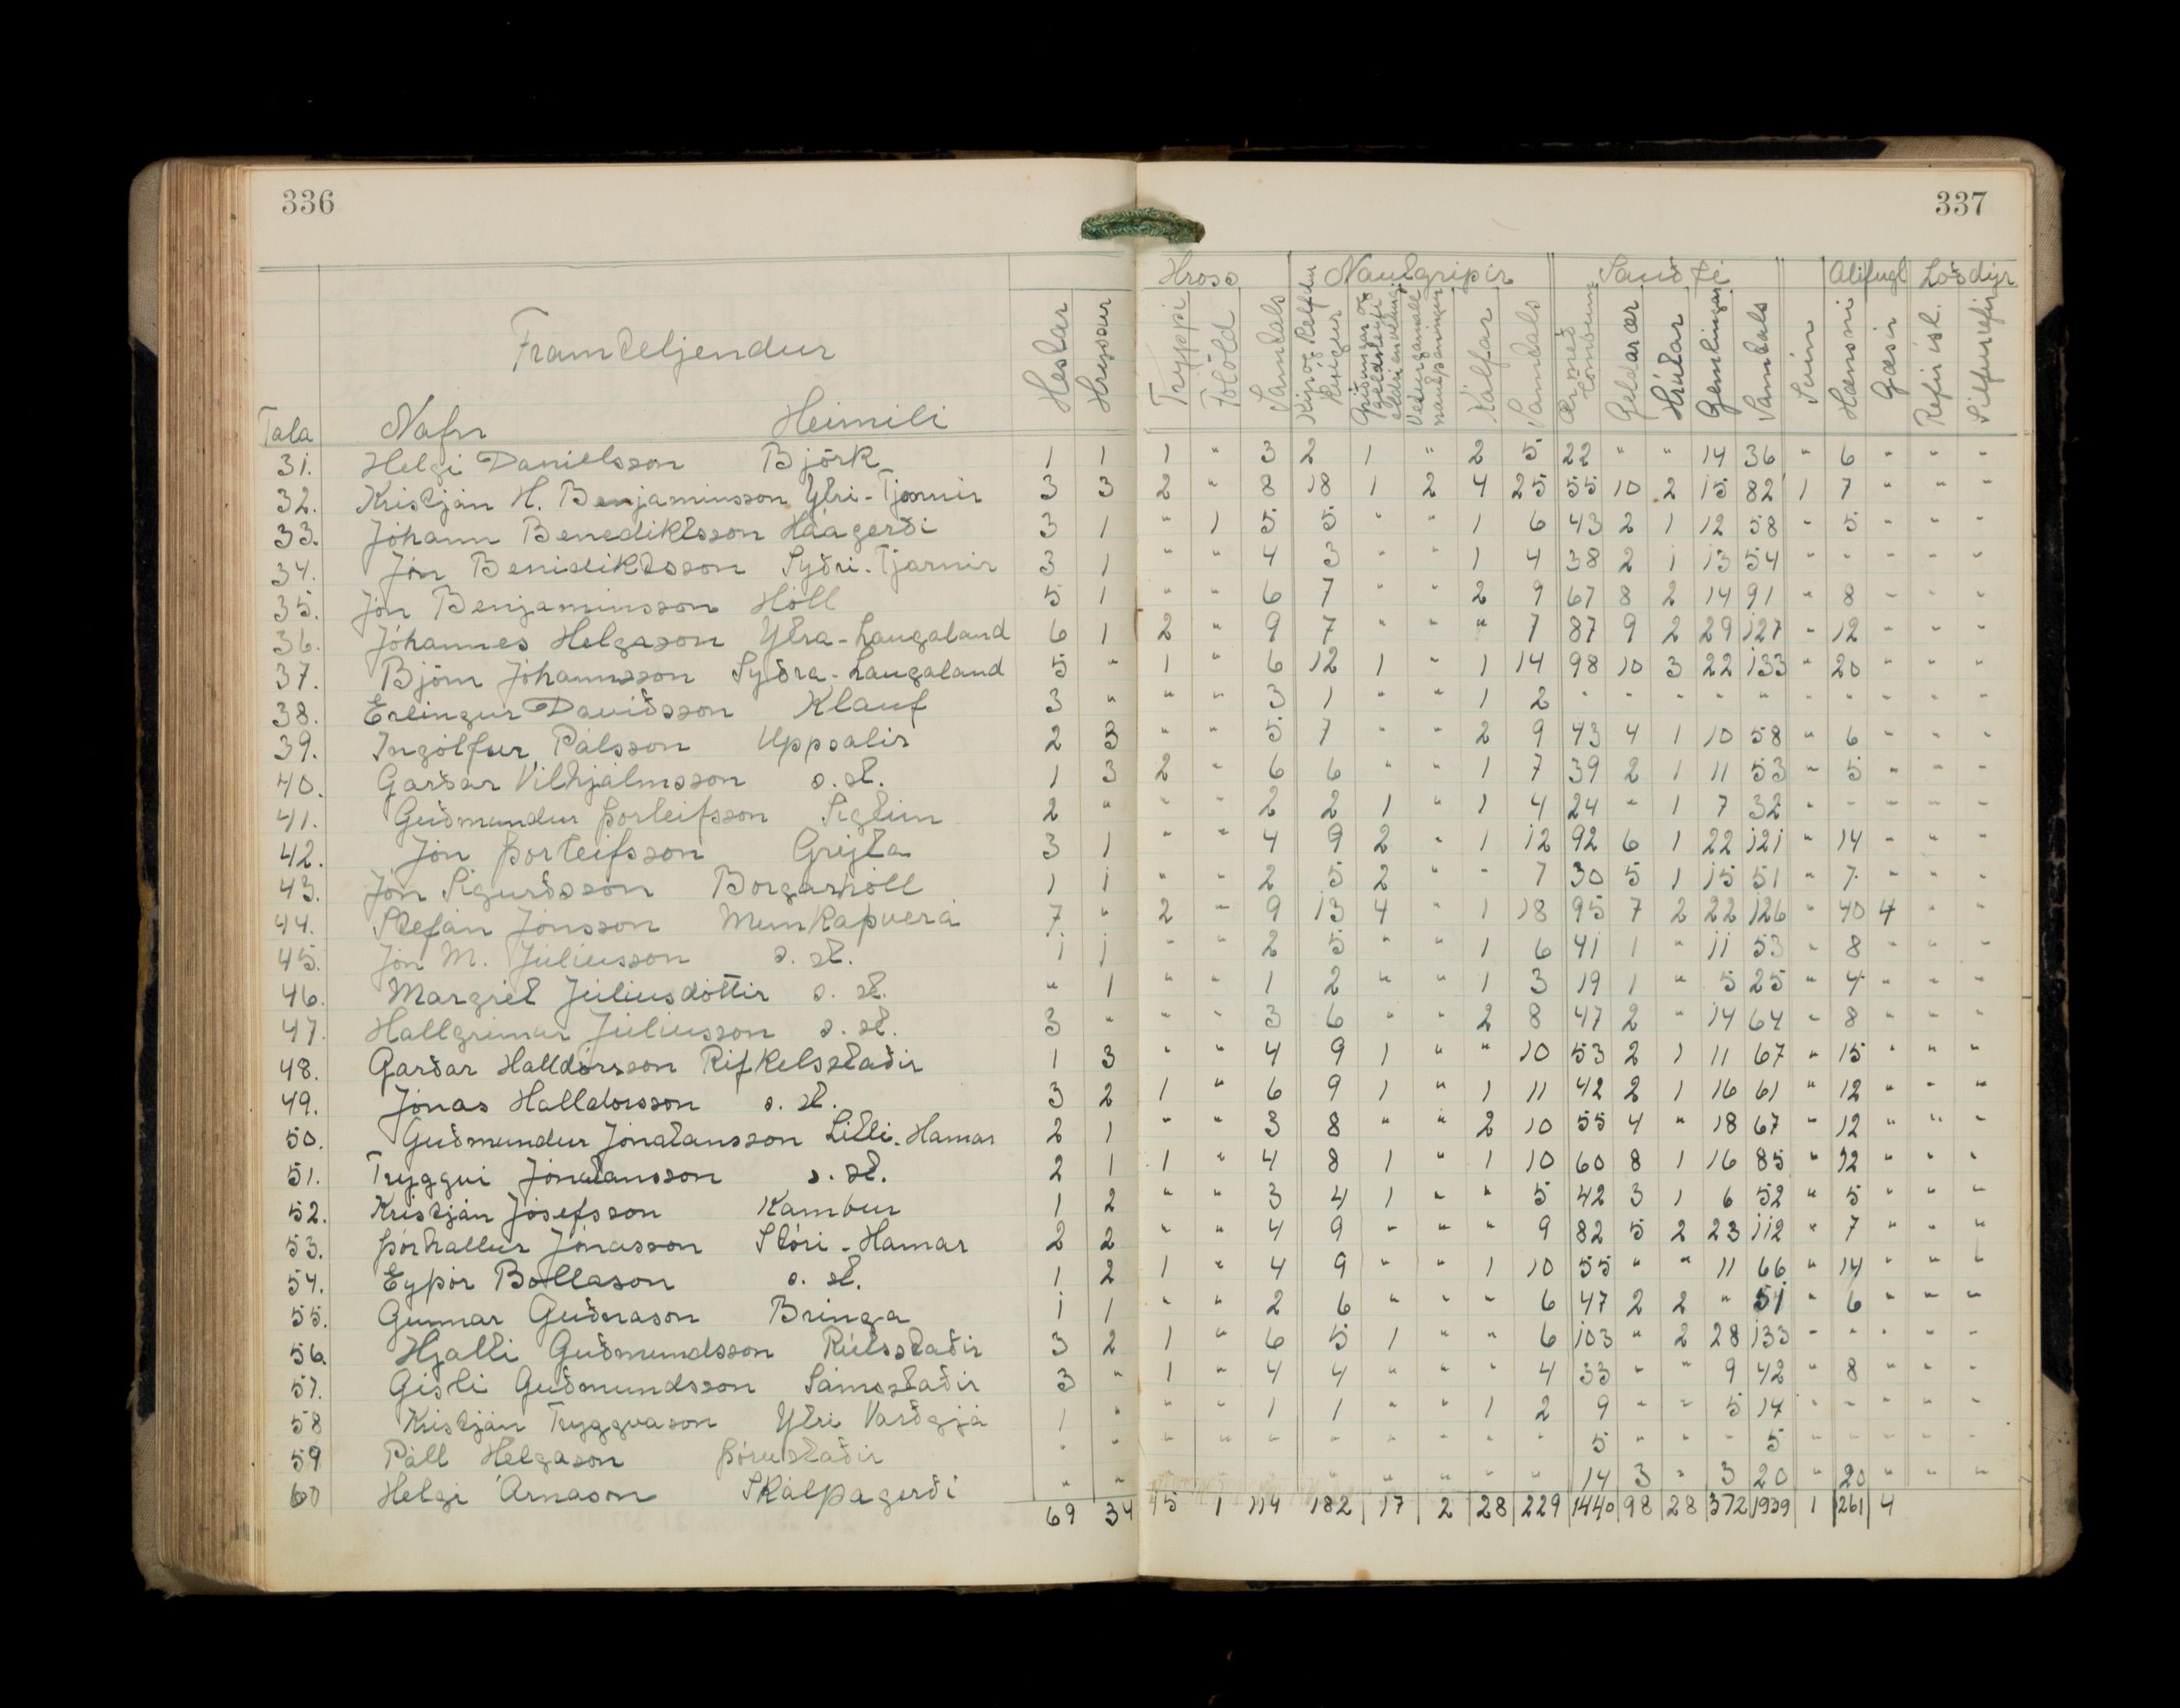 336
337
Hross Nautgripir Sauðfé Alifugl Loðdýr
Framteljendur
Tala Nafn Heimili Hestar Hryssur Tryppi Folöld Samtals Kýr og Kelfdar Kvígur Kálfar Samtals Ær með lömbum Geldar ær Hrútar Gemlingar Samtals Svín Hænsni Gæsir Refir ísl. Silfurrefir
31. Helgi Daníelsson Björk 1 1 1 " 3 2 1 " 2 5 22 " " 14 36 " 6 " " "
32. Kristján H. Benjamínsson Ytri-Tjarnir 3 3 2 " 8 18 1 2 4 25 55 10 2 15 82 1 7 " " "
33. Jóhann Benediktsson Háagerði 3 1 " 1 5 5 " " 1 6 43 2 1 12 58 " 5 " " "
34. Jón Benidiktsson Syðri-Tjarnir 3 1 " " 4 3 " " 1 4 38 2 1 13 54 " " " " "
35. Jón Benjamínsson Hóll 5 1 " " 6 7 " " 2 9 67 8 2 14 91 " 8 " " "
36. Jóhannes Helgason Ytra-Laugaland 6 1 2 " 9 7 " " " 7 87 9 2 29 127 " 12 " " "
37. Björn Jóhannsson Syðra-Laugaland 5 " 1 " 6 12 1 " 1 14 98 10 3 22 133 " 20 " " "
38. Erlingur Davíðsson Klauf 3 " " " 3 1 " " 1 2 " " " " " " " " " "
39. Ingólfur Pálsson Uppsalir 2 3 " " 5 7 " " 2 9 43 4 1 10 58 " 6 " " "
40. Garðar Vilhjálmsson s.st. 1 3 2 " 6 6 " " 1 7 39 2 1 11 53 " 5 " " "
41. Guðmundur Þorleifsson Sigtún 2 " " " 2 2 1 " 1 4 24 " 1 7 32 " " " " "
42. Jón Þorleifsson Grýta 3 1 " " 4 9 2 " 1 12 92 6 1 22 121 " 14 " " "
43. Jón Sigurðsson Borgarhóll 1 1 " " 2 5 2 " " 7 30 5 1 15 51 " 7 " " "
44. Stefán Jónsson Munkaþverá 7 " 2 " 9 13 4 " 1 18 95 7 2 22 126 " 40 4 " "
45. Jón M. Júlíusson s.st. 1 1 " " 2 5 " " 1 6 41 1 " 11 53 " 8 " " "
46. Margrét Júlíusdóttir s.st. " 1 " " 1 2 " " 1 3 19 1 " 5 25 " 4 " " "
47. Hallgrímur Júlíusson s.st. 3 " " " 3 6 " " 2 8 47 2 " 14 64 " 8 " " "
48. Garðar Halldórsson Rifkelsstaðir 1 3 " " 4 9 1 " " 10 53 2 1 11 67 " 15 " " "
49. Jónas Halldórsson s.st. 3 2 1 " 6 9 1 " 1 11 42 2 1 16 61 " 12 " " "
50. Guðmundur Jónatansson Litli-Hamar 2 1 " " 3 8 " " 2 10 55 4 " 18 67 " 12 " " "
51. Tryggvi Jónatansson s.st. 2 1 1 " 4 8 1 " 1 10 60 8 1 16 85 " 12 " " "
52. Kristján Jósefsson Kambur 1 2 " " 3 4 1 " " 5 42 3 1 6 52 " 5 " " "
53. Þórhallur Jónasson Stóri-Hamar 2 2 " " 4 9 " " " 9 82 5 2 23 112 " 7 " " "
54. Eyþór Bollason s.st. 1 2 1 " 4 9 " " 1 10 55 " " 11 66 " 14 " " "
55. Gunnar Guðnason Bringa 1 1 " " 2 6 " " " 6 47 2 2 " 51 " 6 " " "
56. Hjalti Guðmundsson Rútsstaðir 3 2 1 " 6 5 1 " " 6 103 " 2 28 133 " " " " "
57. Gísli Guðmundsson Sámsstaðir 3 " 1 " 4 4 " " " 4 33 " " 9 42 " 8 " " "
58 Kristján Tryggvason Ytri Varðgjá 1 " " " 1 1 " " 1 2 9 " " 5 14 " " " " "
59 Páll Helgason Þórustaðir " " " " " " " " " " 5 " " " 5 " " " " "
60 Helgi Árnason Skálpagerði " " " " " " " 14 3 " 3 20 " 20 " " "
69 34 15 1 114 182 17 2 28 229 1440 98 28 372 1939 1 261 4